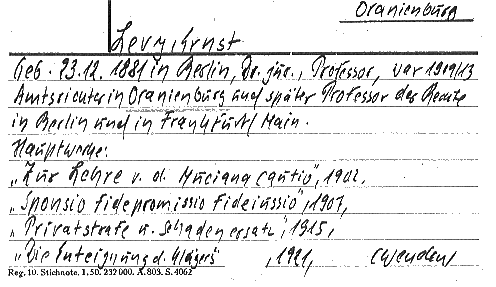 Oranienburg
Levy, Ernst
Geb. 23.12.1881 in Berlin, Dr. jur., Professor, war 1909/13
Amtsrichter in Oranienburg und später Professor der Rechte
in Berlin und in Frankfurt/Main.
Hauptwerke:
„Zur Lehre v. d. Muciana cautio", 1902,
„Sponsio fidepromissio fideiussio", 1907,
„Privatstrafe u. Schadenersatz", 1915,
„Die Enteignung d. Klägers" , 1921, (Wenden
Reg. 10. Stichnote. 1. 50. 232 000. A. 803. S. 4062